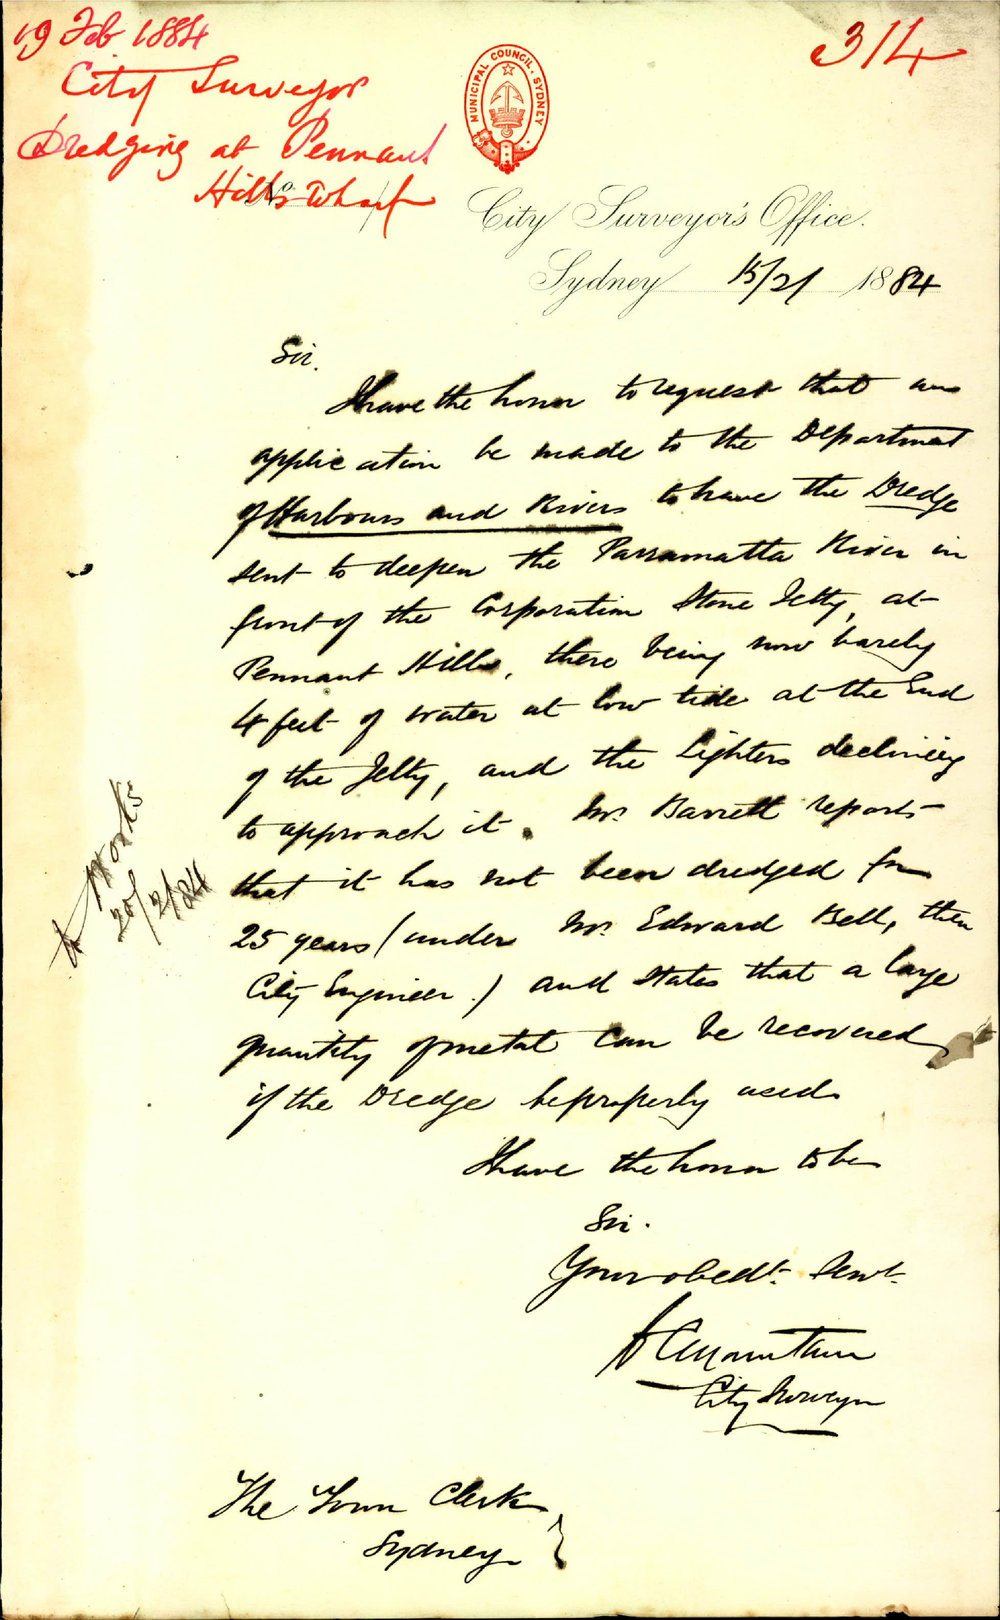 19 Feb 1884
City Surveyor
Dredging at Pennant
Hills Wharf
314
MUNICIPAL COUNCIL. SYDNEY
No
City Surveyor's Office.
Sydney 15/2/ 1884
Sir.
I have the honor to request that an
application be made to the Department
of Harbours and Rivers to have the Dredge
sent to deepen the Parramatta River in
front of the Corporation Stone Jetty, at
Pennant Hills, there being now barely
4 feet of water at low tide at the End
of the Jetty, and the Lighters declining
to approach it. Mr. Barrett reports
that it has not been dredged for
25 years (under Mr. Edward Bell, then
City Engineer.) and states that a large
quantity of metal can be recovered
if the Dredge be properly used
I have the honor to be
Sir.
Your obedt. Servt.
A C Mountain
City Surveyor
The Town Clerk
Sydney
Works
20/2/84